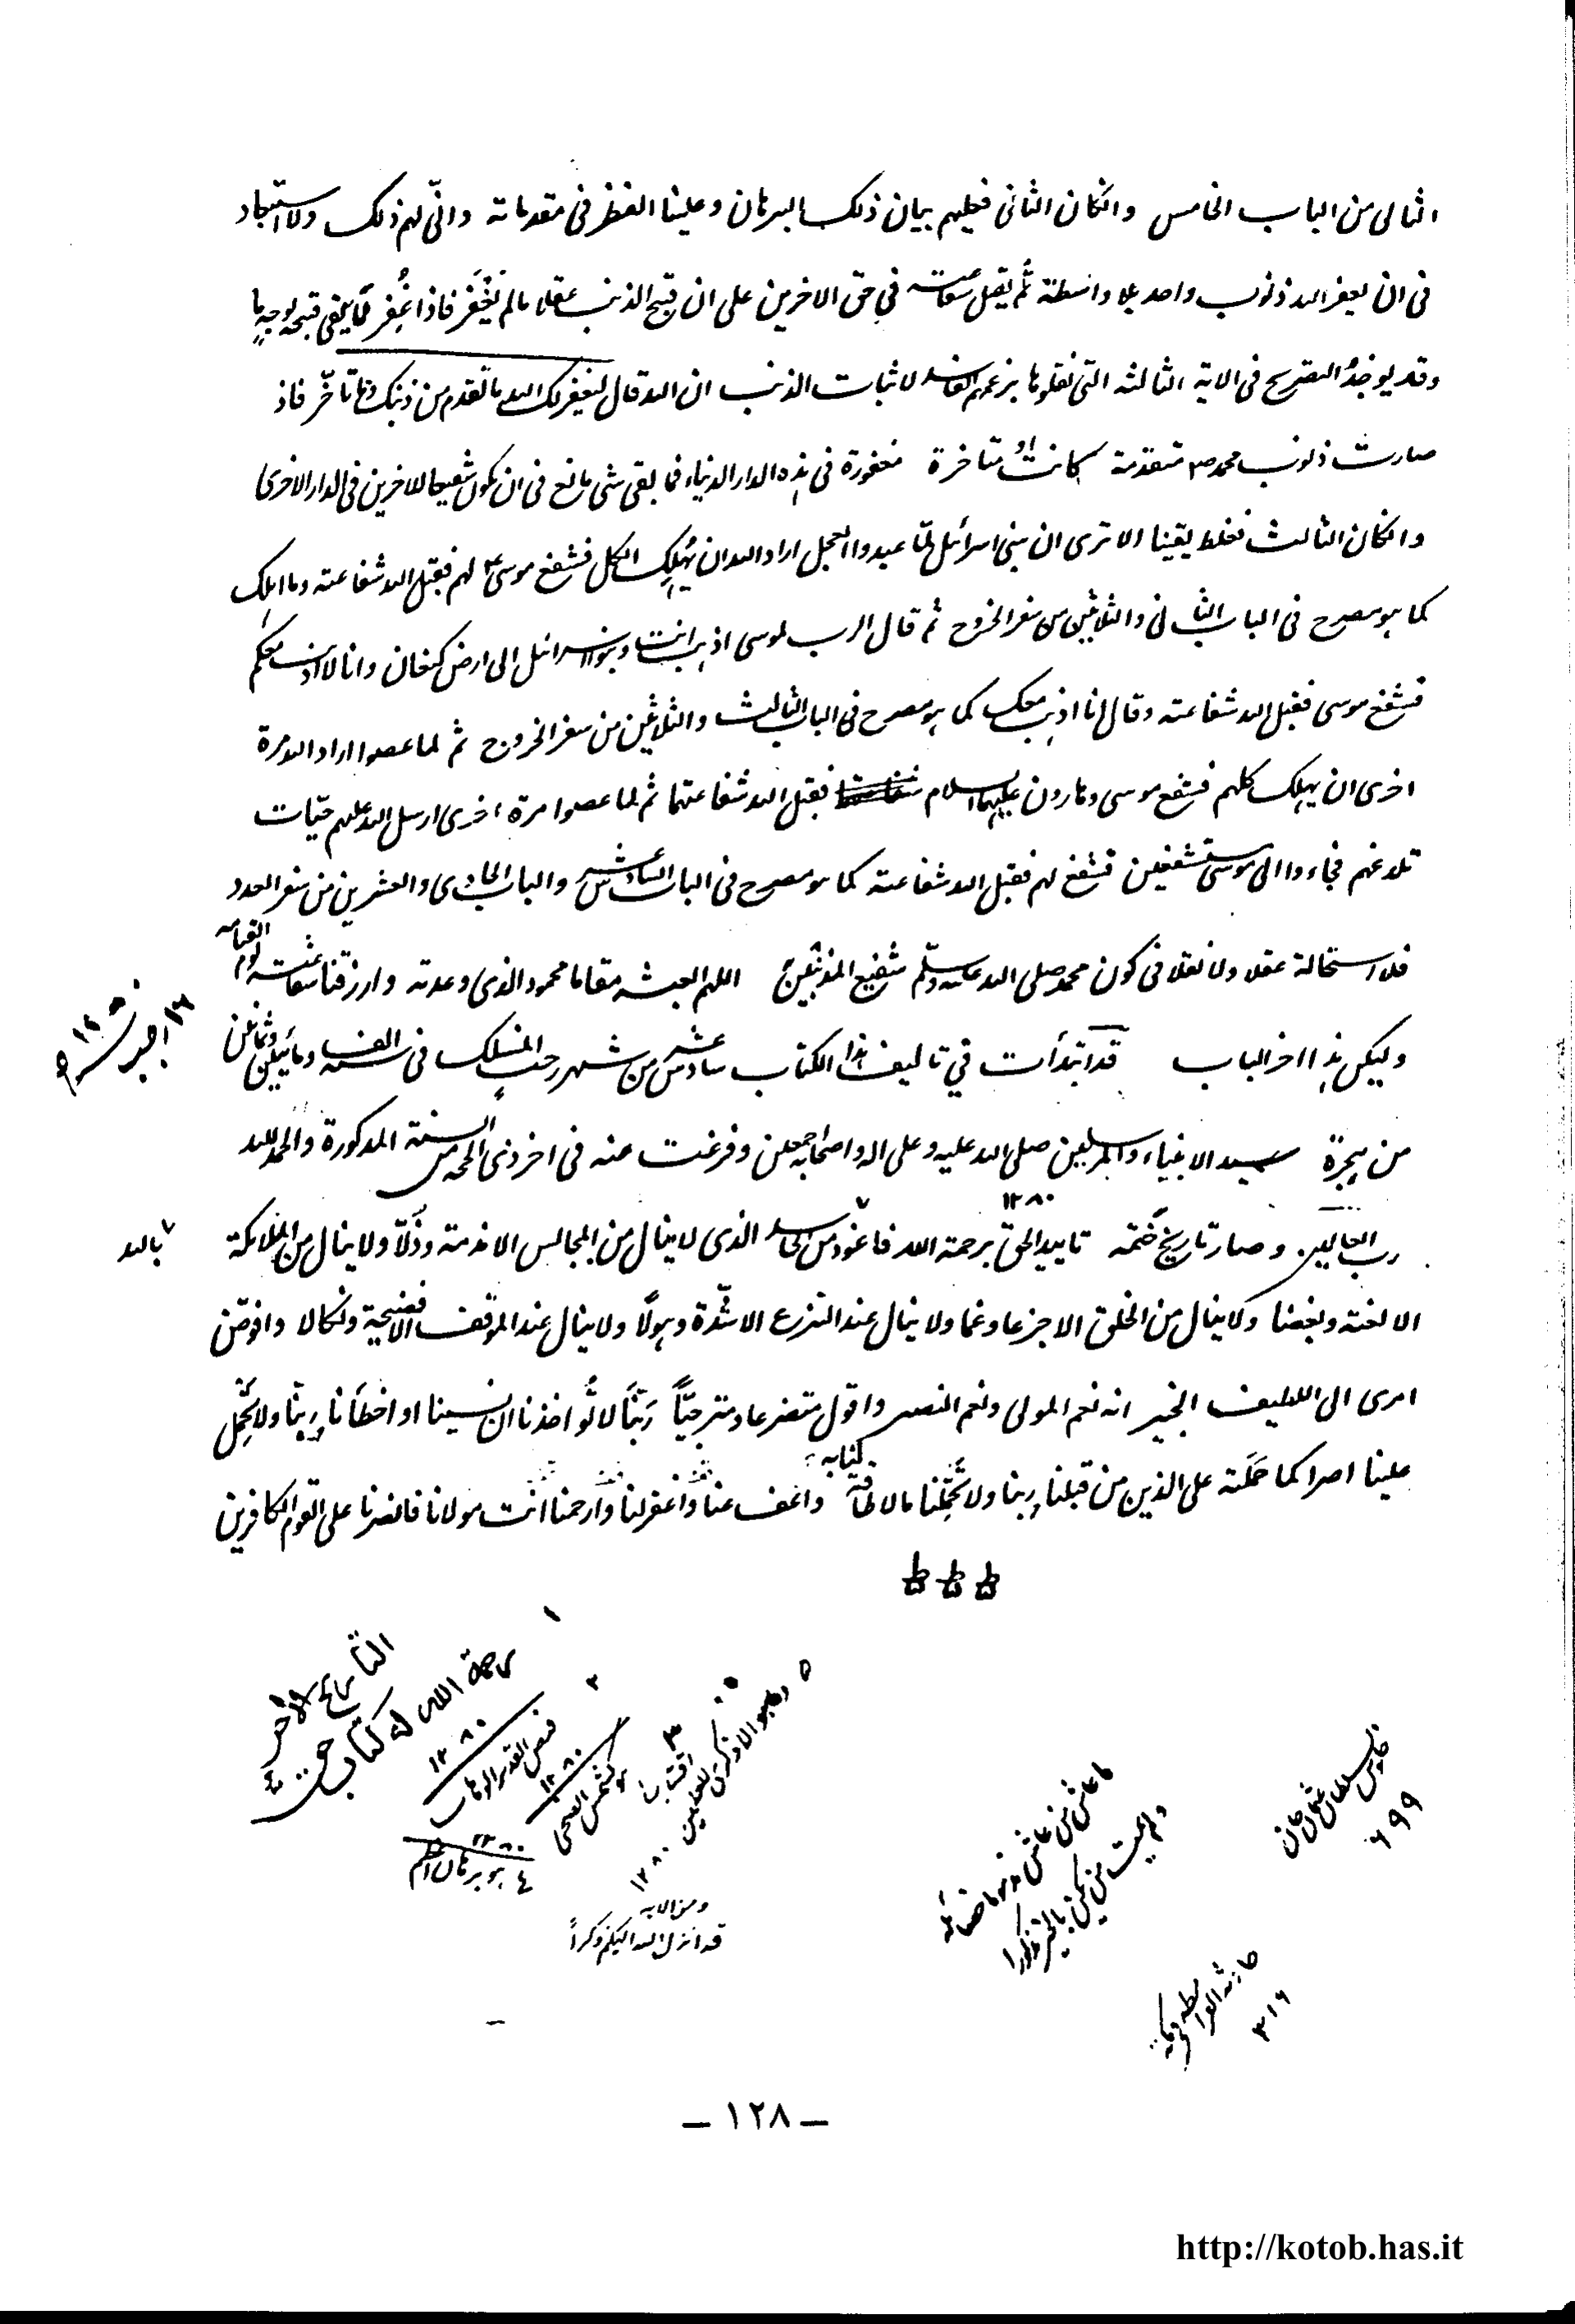 الثالى من الباب الخامس وانكان الثانى فعليهم بيان ذلك البرهان وعلينا النظر فى مقدماته وانّى لهم ذلك ولا استبعاد
فى ان يغفر الله ذنوب واحد بلا واسطة ثم يقبل شفاعته فى حق الاخرين على ان قبح الذنب عقلا مالم يُغفَر فاذا غُفِر فما يبقى قبحه لوجهٍ ما
وقد يوجد التصريح فى الاية الثالثه التى نقلوها بزعمهم الفاسد لاثبات الذنب ان الله قال ليغفر لك الله ما تقدم من ذنبك وما تاخّر فاذ
صارت ذنوب محمد ص متقدمة كانت او متاخرة مغفورة فى هذه الدار الدنياء فما بقى شى مانع فى ان يكون شفيعا للاخرين فى الدار الاخرى
وانكان الثالث فغلط يقينا الا ترى ان بنى اسرائيل لمّا عبدوا العجل اراد الله ان يُهلِك الكل فشفع موسى ع لهم فقبل الله شفاعته وما اهلك
كما هو مصرح فى الباب الثانى والثلاثين من سفر الخروج ثم قال الرب لموسى اذهب انت وبنو اسرائيل الى ارض كنعان وانا لا اذهب معكم
فشفع موسى فقبل الله شفاعته وقال انا اذهب معك كما هو مصرح فى الباب الثالث والثلاثين من سفر الخروج ثم لما عصوا اراد الله مرة
اخرى ان يهلك كلهم فشفع موسى وهارون عليهما السلام فقبل الله شفاعتهما ثم لما عصوا مرة اخرى ارسل الله عليهم حيّات
تلدغهم فجاءوا الى موسى مستشفعين فشفع لهم فقبل الله شفاعته كما هو مصرح فى الباب السادس عشر والباب الحادى والعشرين من سفر العدد
فلا استحالة عقلا ولا نقلا فى كون محمد صلى الله عليه وسلّم شفيع المذنبين اللهم ابعثه مقاما محمود الذى وعدته وارزقنا شفاعته يوم القيامه
وليكن هذا اخر الباب قد ابتدأت في تاليف هذا الكتاب سادس عشر من شهر رجب المنسلك فى سنة الف ومائتين وثمانين
١٦ رجب ١٢٨٠
من هجرة سيد الانبياء والمرسلين صلى الله عليه وعلى اله واصحابه اجمعين وفرغت عنه فى اخر ذى الحجه من السنة المذكورة والحمد لله
رب العالمين وصار تاريخ ختمه تاييد الحق برحمة الله ١٢٨٠ فاعوذ بالله من الحاسد الذى لا ينال من المجالس الا مذمة وذلّا ولا ينال من الملائكة
الا لعنة وبغضا ولا ينال من الخلق الا جزعا وغما ولا ينال عند النزع الا شدّة وهولًا ولا ينال عند الموقف الا فضيحة ونكالا وافوّض
امرى الى اللطيف الخبير انه نعم المولى ونعم النصير واقول متضرعا ومترجيّاً ربّنا لا تُواخذنا ان نسينا او اخطأنا ربنا ولا تحمِل
علينا اصرا كما حَمَلته على الذين من قبلنا ربنا ولا تُحمّلنا مالا طاقة لنا به واعف عنا واغفرلنا وارحمنا انت مولانا فانصرنا على القوم الكافرين
ط ط ط
التاريخ الآخر
١
رحمة الله له كتاب
١٢٨٠
٢
فيض القدير الوهاب
١٢٨٠
٣
كشمس الضحى
١٢٨٠
٤ هو برهان
٥ وما هو الا ذكرى للعالمين
١٢٨٠
ومن الايه
قد انزل الله اليكم ذكراً
ما عاش من عاش
ولم يمت من يكن بالخير مذكورا
جلوس سلطان عثمان خان
٦٩٩
٣١٦
– ١٢٨ –
http://kotob.has.it